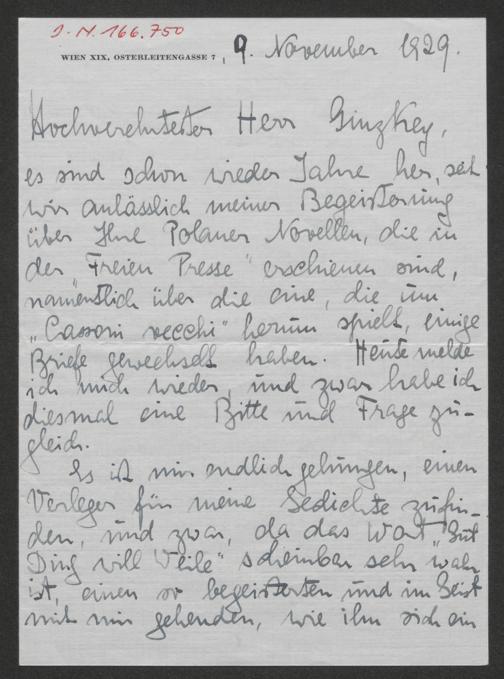 J.N. 166.750
WIEN XIX, OSTERLEITENGASSE 7, 9. November 1929.
Hochverehrtester Herr Ginzkey,
es sind schon wieder Jahre her, seit
wir anlässlich meiner Begeisterung
über Ihre Polaner Novellen, die in
der "Freien Presse" erschienen sind,
namentlich über die eine, die um
„Cassoni vecchi" herum spielt, einige
Briefe gewechselt haben. Heute melde
ich mich wieder, und zwar habe ich
diesmal eine Bitte und Frage zu-
gleich.
Es ist mir endlich gelungen, einen
Verleger für meine Gedichte zu fin-
den, und zwar, da das Wort „Gut
Ding will Weile" scheinbar sehr wahr
ist, einen so begeisterten und im Geist
mit mir gehenden, wie ihn sich ein